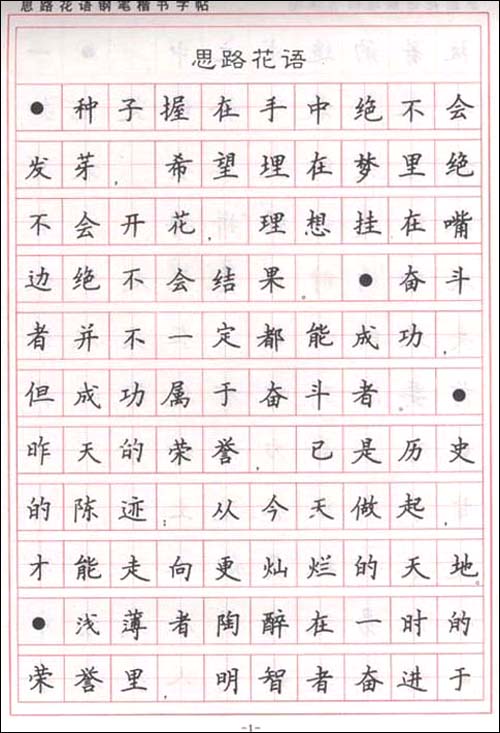 思路花语钢笔楷书字帖
思路花语
●种子握在手中绝不会
发芽，希望埋在梦里绝
不会开花，理想挂在嘴
边绝不会结果。●奋斗
者并不一定都能成功，
但成功属于奋斗者。●
昨天的荣誉，已是历史
的陈迹；从今天做起，
才能走向更灿烂的天地。
●浅薄者陶醉在一时的
荣誉里，明智者奋进于
-1-